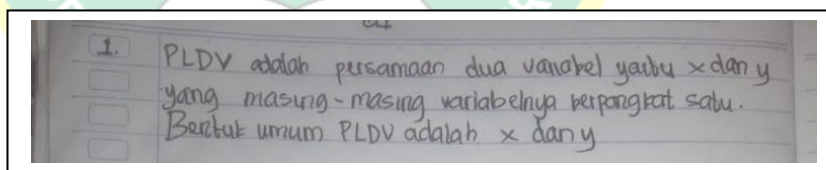 1. PLDV adalah persamaan dua variabel yaitu x dan y
yang masing-masing variabelnya berpangkat satu.
Bentuk umum PLDV adalah x dan y